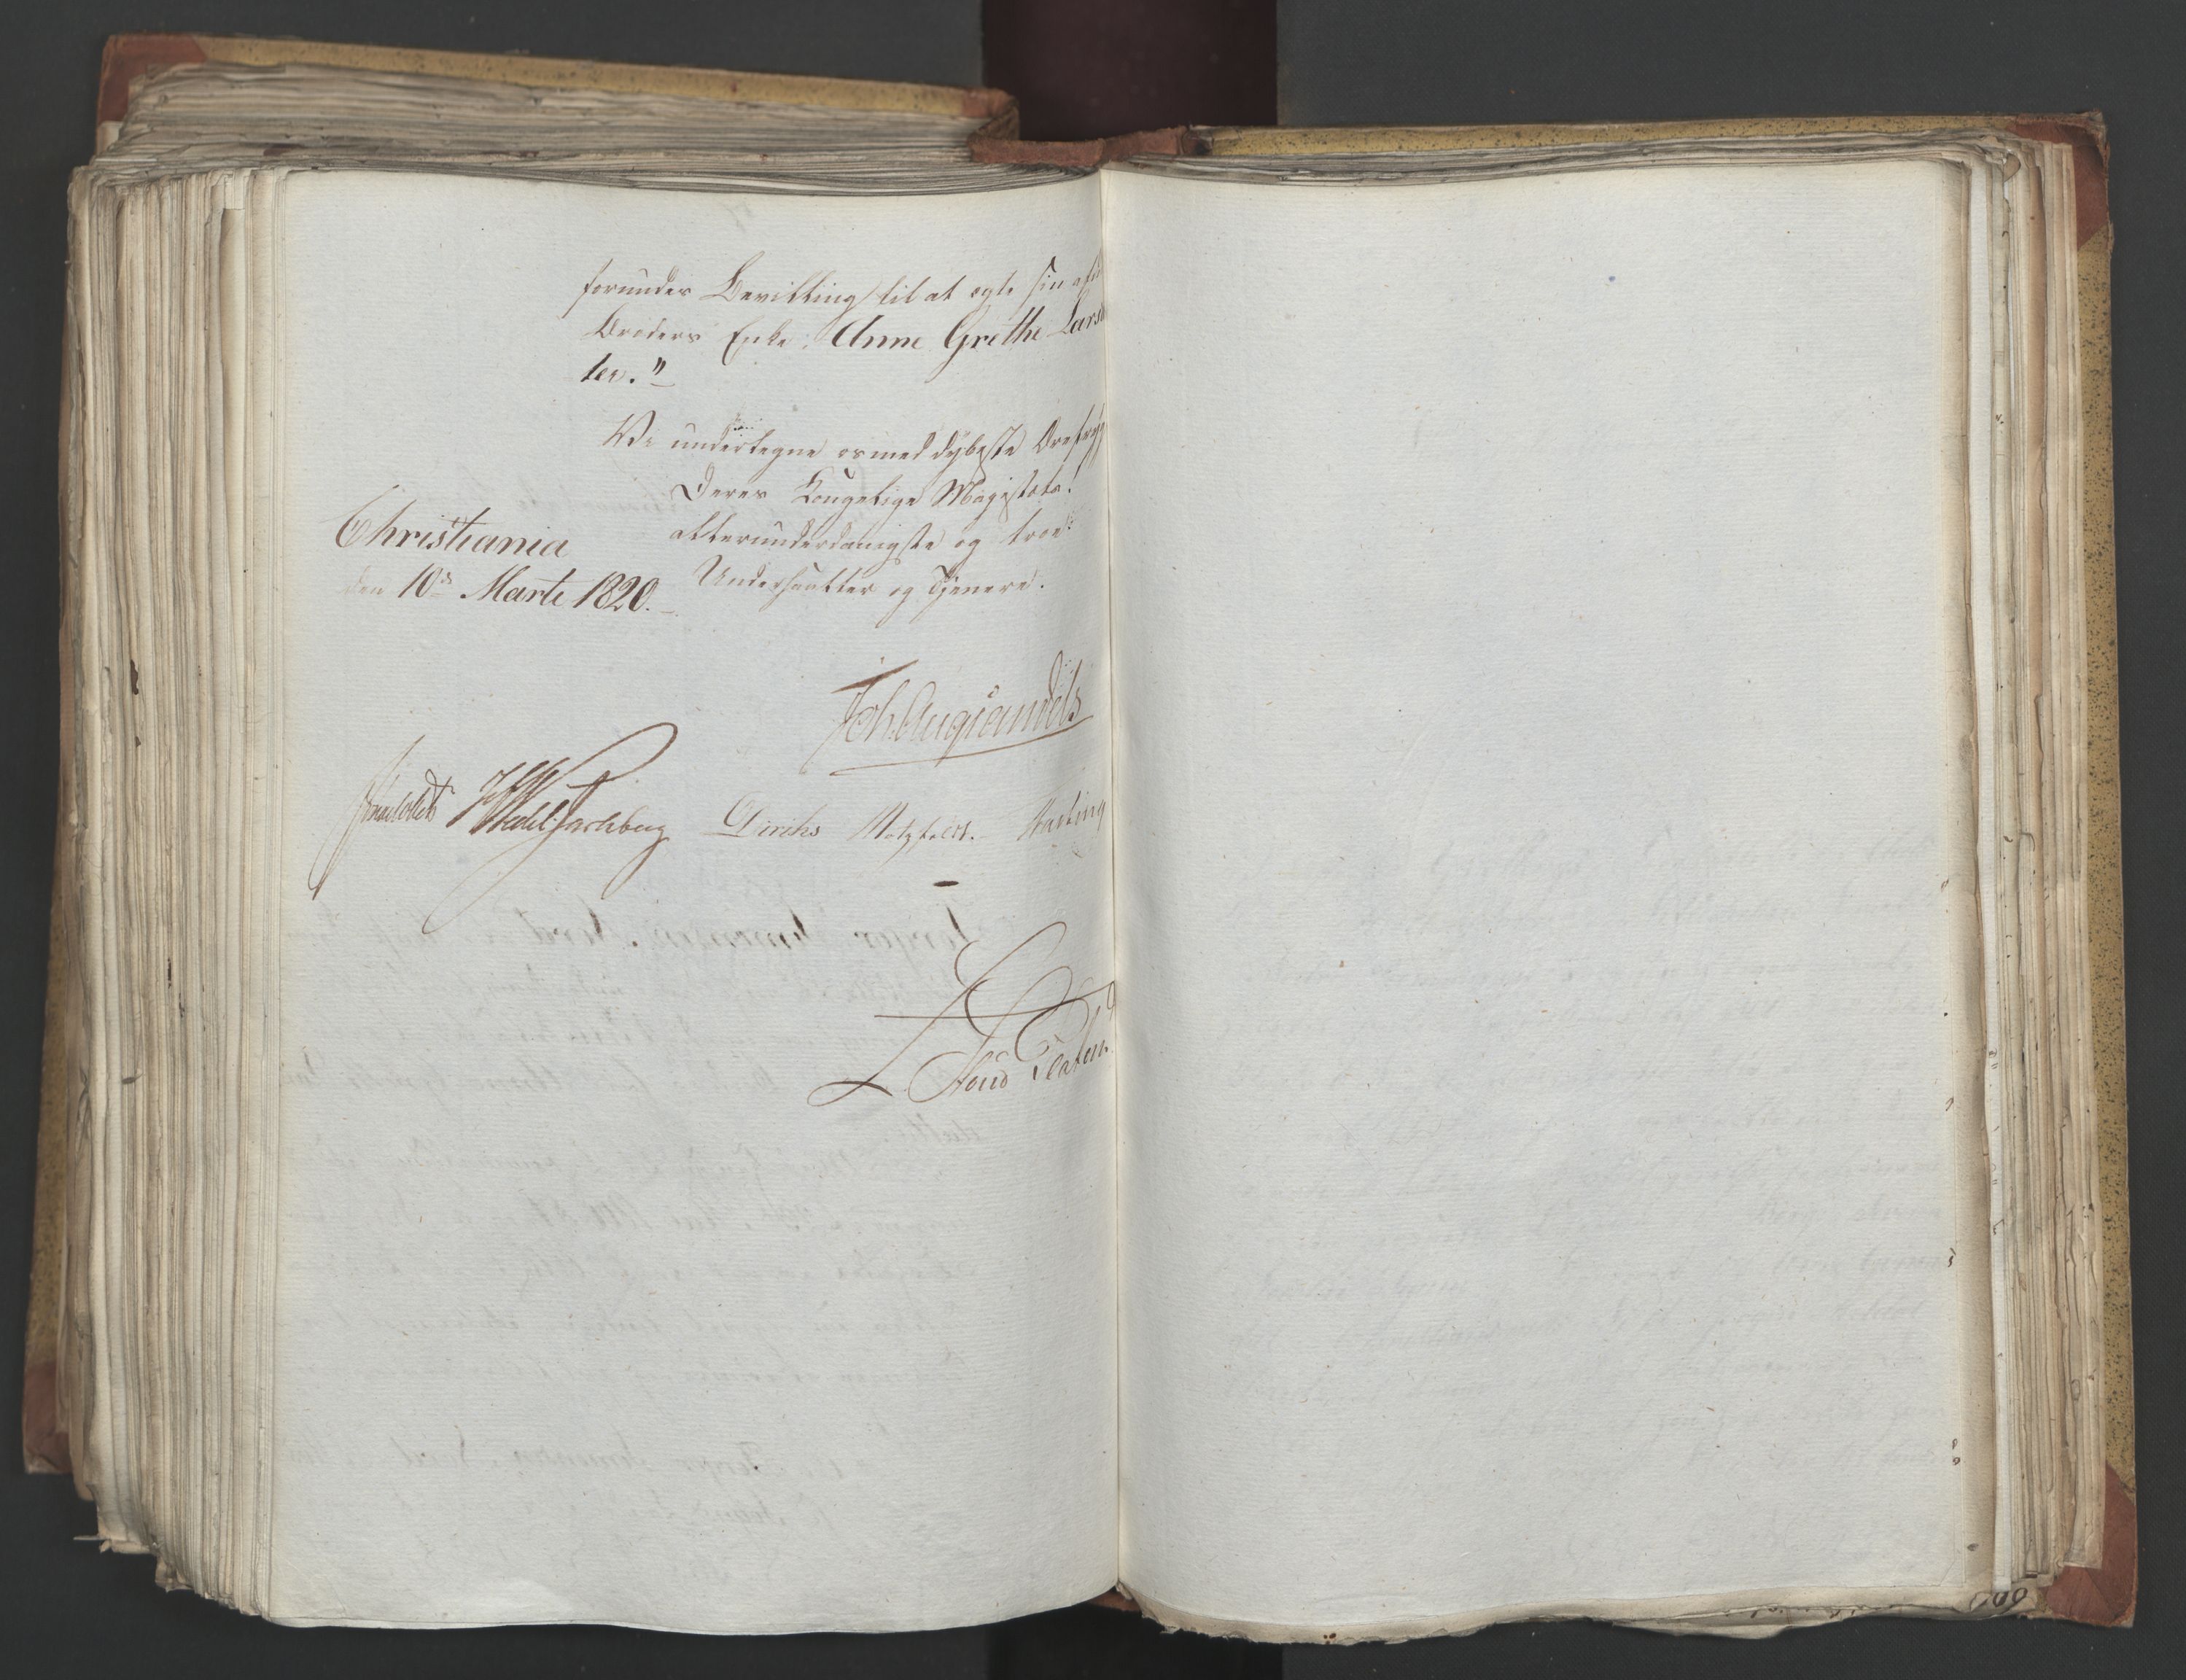 forundes Bevilling til at egte sin afd
Broders Enke, Anne Grethe Larsd
ter."
Vi undertegne os med dybeste Ærefrygt
Deres Kongelige Majestæts
allerunderdanigste og troe
Undersaatter og Tjenere.
Christiania
den 10de Marts 1820.
Joh. Aug. Sandels
Sommerfeldt JCHWedel Jarlsberg Diriks Motzfeldt. Fasting
L. Stoud Platou